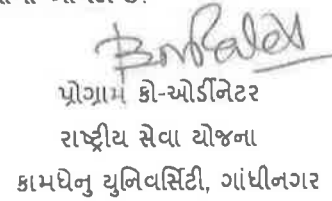 પ્રોગ્રામ કો-ઓર્ડીનેટર
રાષ્ટ્રીય સેવા યોજના
કામધેનુ યુનિવર્સિટી, ગાંધીનગર